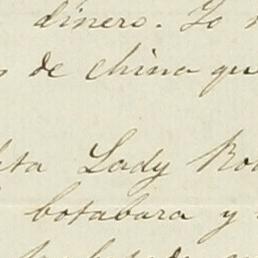 dinero. Lo
de china qu
Lady Ro
botabara y